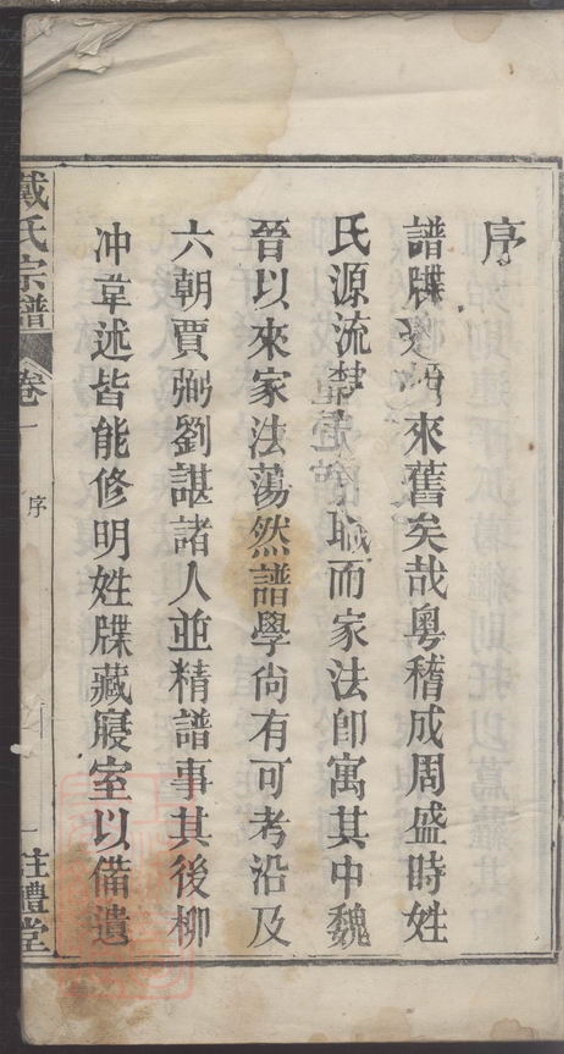 序
譜牒來舊矣哉粵稽成周盛時姓
氏源流職而家法卽寓其中魏
晉以來家法蕩然譜學尙有可考沿及
六朝賈弼劉諶諸人並精譜事其後柳
冲韋述皆能修明姓牒藏寢室以備遺
戴氏宗譜
卷一
序
一
註禮堂